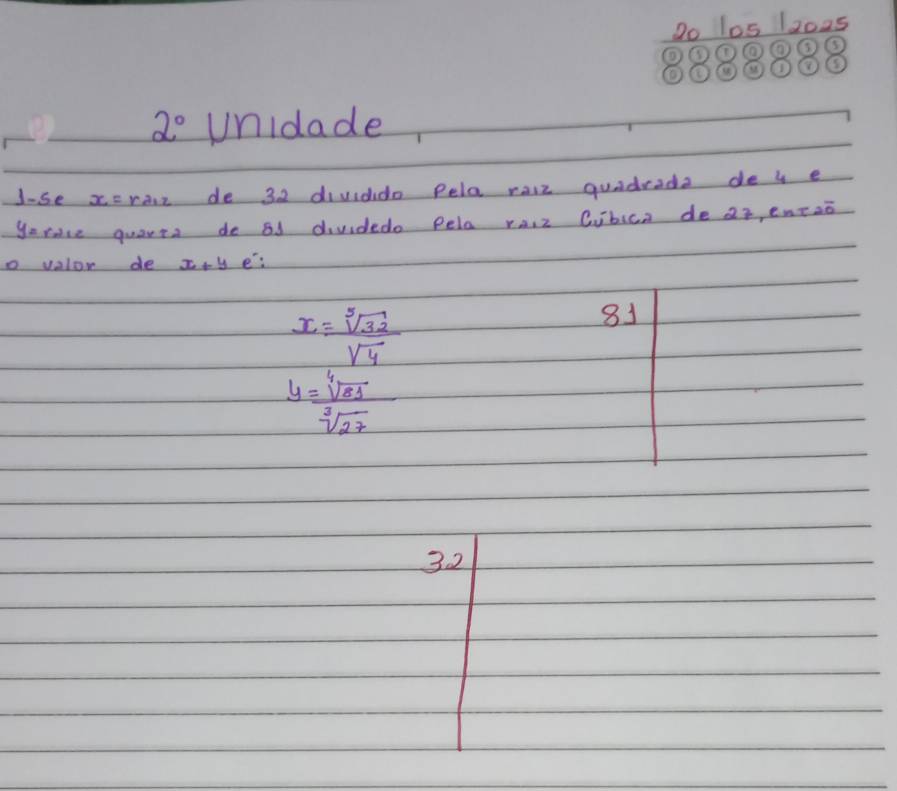 20 | 05 | 2025
D S T Q Q S S
D L M M J V S
2º Unidade
1-Se x=raiz de 32 dividido Pela raiz quadrada de 4 e
y=raiz quarta de 81 divdedo Pela raiz Cúbica de 27, então
o valor de x+y é:
x = ⁵√32 / √4
81
y = ⁴√81 / ³√27
32